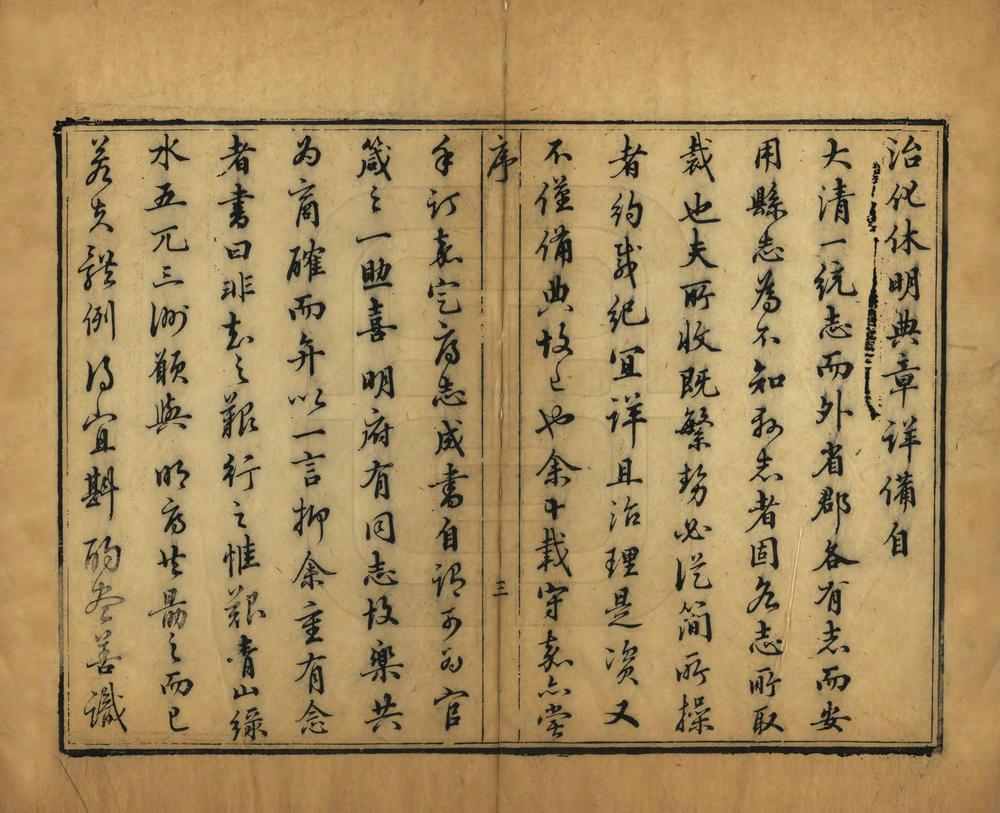 治化休明典章詳備自
大清一統志而外省郡各有志而安
用縣志為不知縣志者固名志所取
裁也夫所收既繁勢必從簡所操
者約載紀宜詳且治理是資又
不僅備典故已也余十載守嘉亦嘗
序
三
手訂嘉定府志成書自謂可為官
箴之一助喜明府有同志故樂共
為商確而弁以一言抑余重有念
者書曰非知之艱行之惟艱青山綠
水五兀三洲願與明府共勗之而已
若夫體例得宜斟酌盡善識